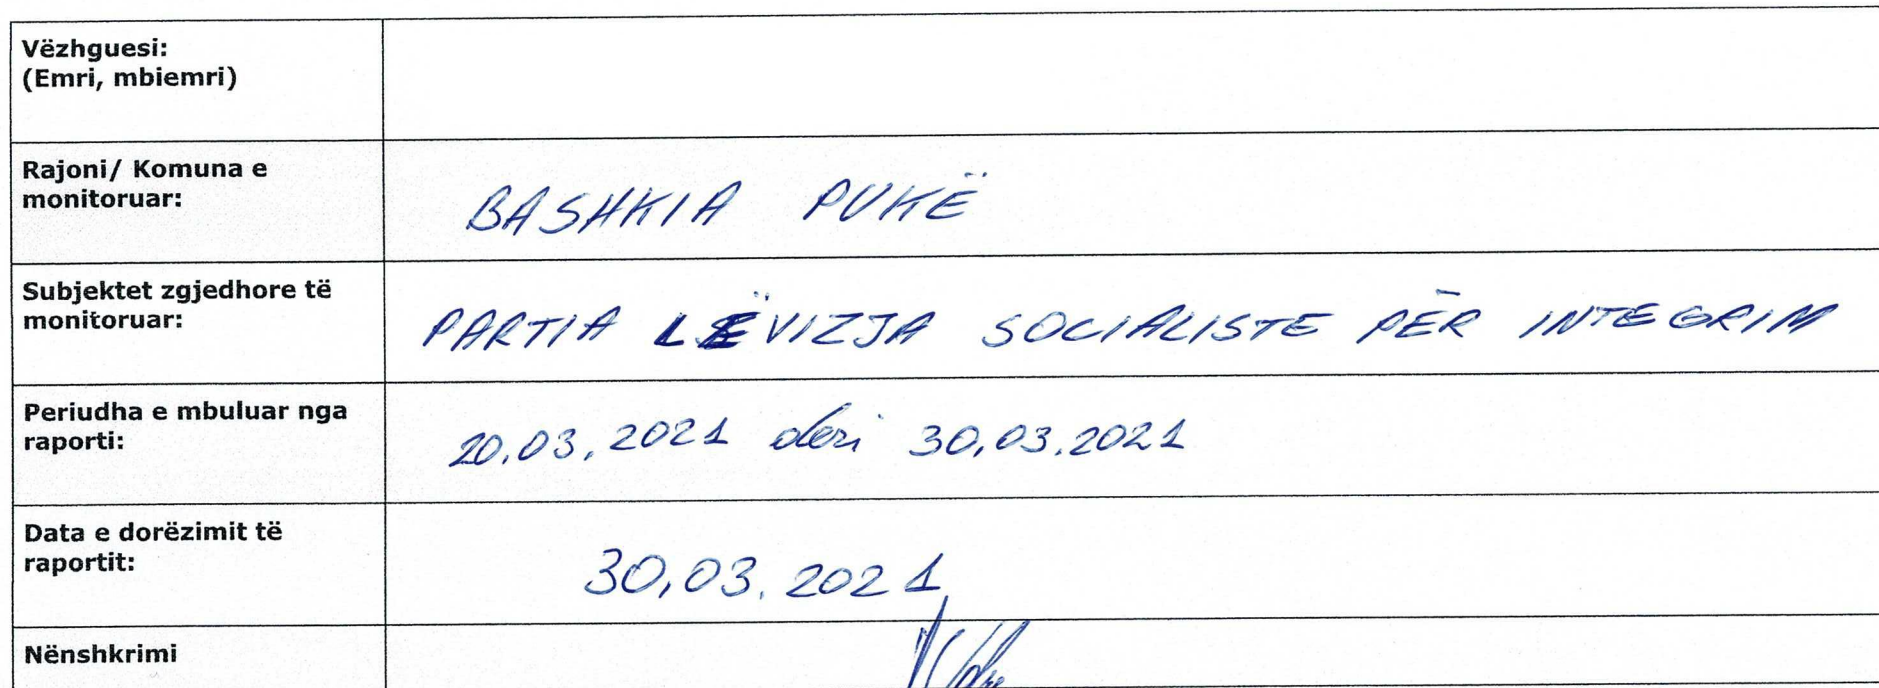 Vëzhguesi:
(Emri, mbiemri)
Rajoni/ Komuna e
monitoruar:
BASHKIA PUKË
Subjektet zgjedhore të
monitoruar:
PARTIA LËVIZJA SOCIALISTE PËR INTEGRIM
Periudha e mbuluar nga
raporti:
20.03.2021 deri 30.03.2021
Data e dorëzimit të
raportit:
30.03.2021
Nënshkrimi